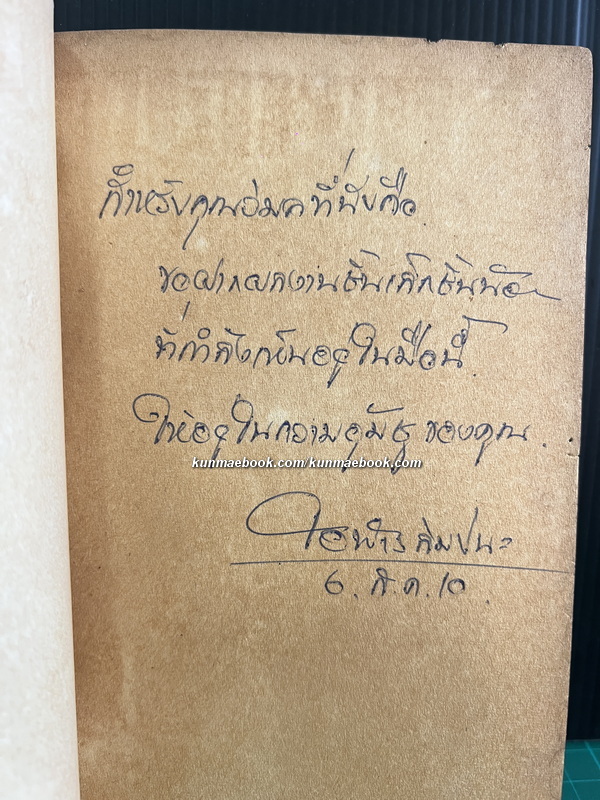 สำหรับคุณอัมล ที่นับถือ
ขอฝากผลงานชิ้นเล็กชิ้นน้อย
ที่กำลังเห็นอยู่ในมือนี้
ให้อยู่ในความอุ้มชู ของคุณ.
kunmaebook.com/kunmaebook.com
6. ส.ค. 10